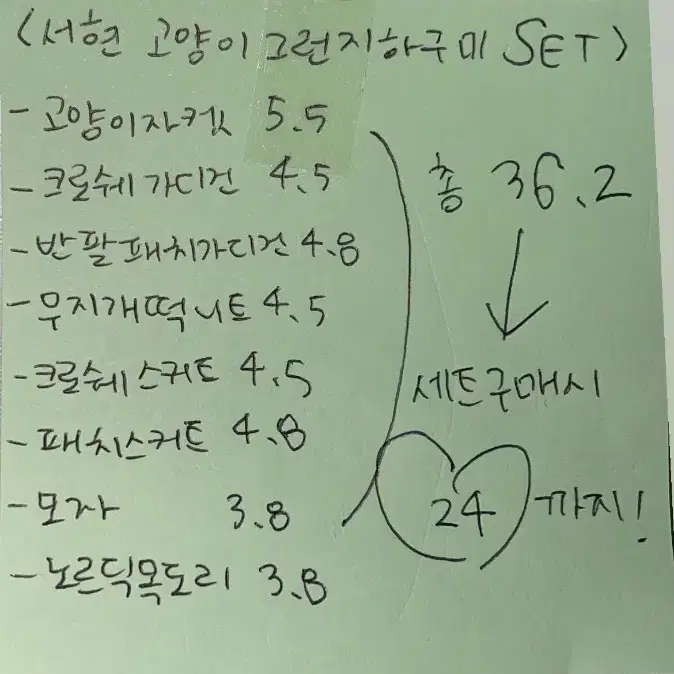 <서현 고양이그런지하구미 SET>
- 고양이자켓 5.5
- 크로쉐가디건 4.5
- 반팔패치가디건 4.8
- 무지개떡니트 4.5
- 크로쉐스커트 4.5
- 패치스커트 4.8
- 모자 3.8
- 노르딕목도리 3.8
총 36.2
세트구매시
24 까지!